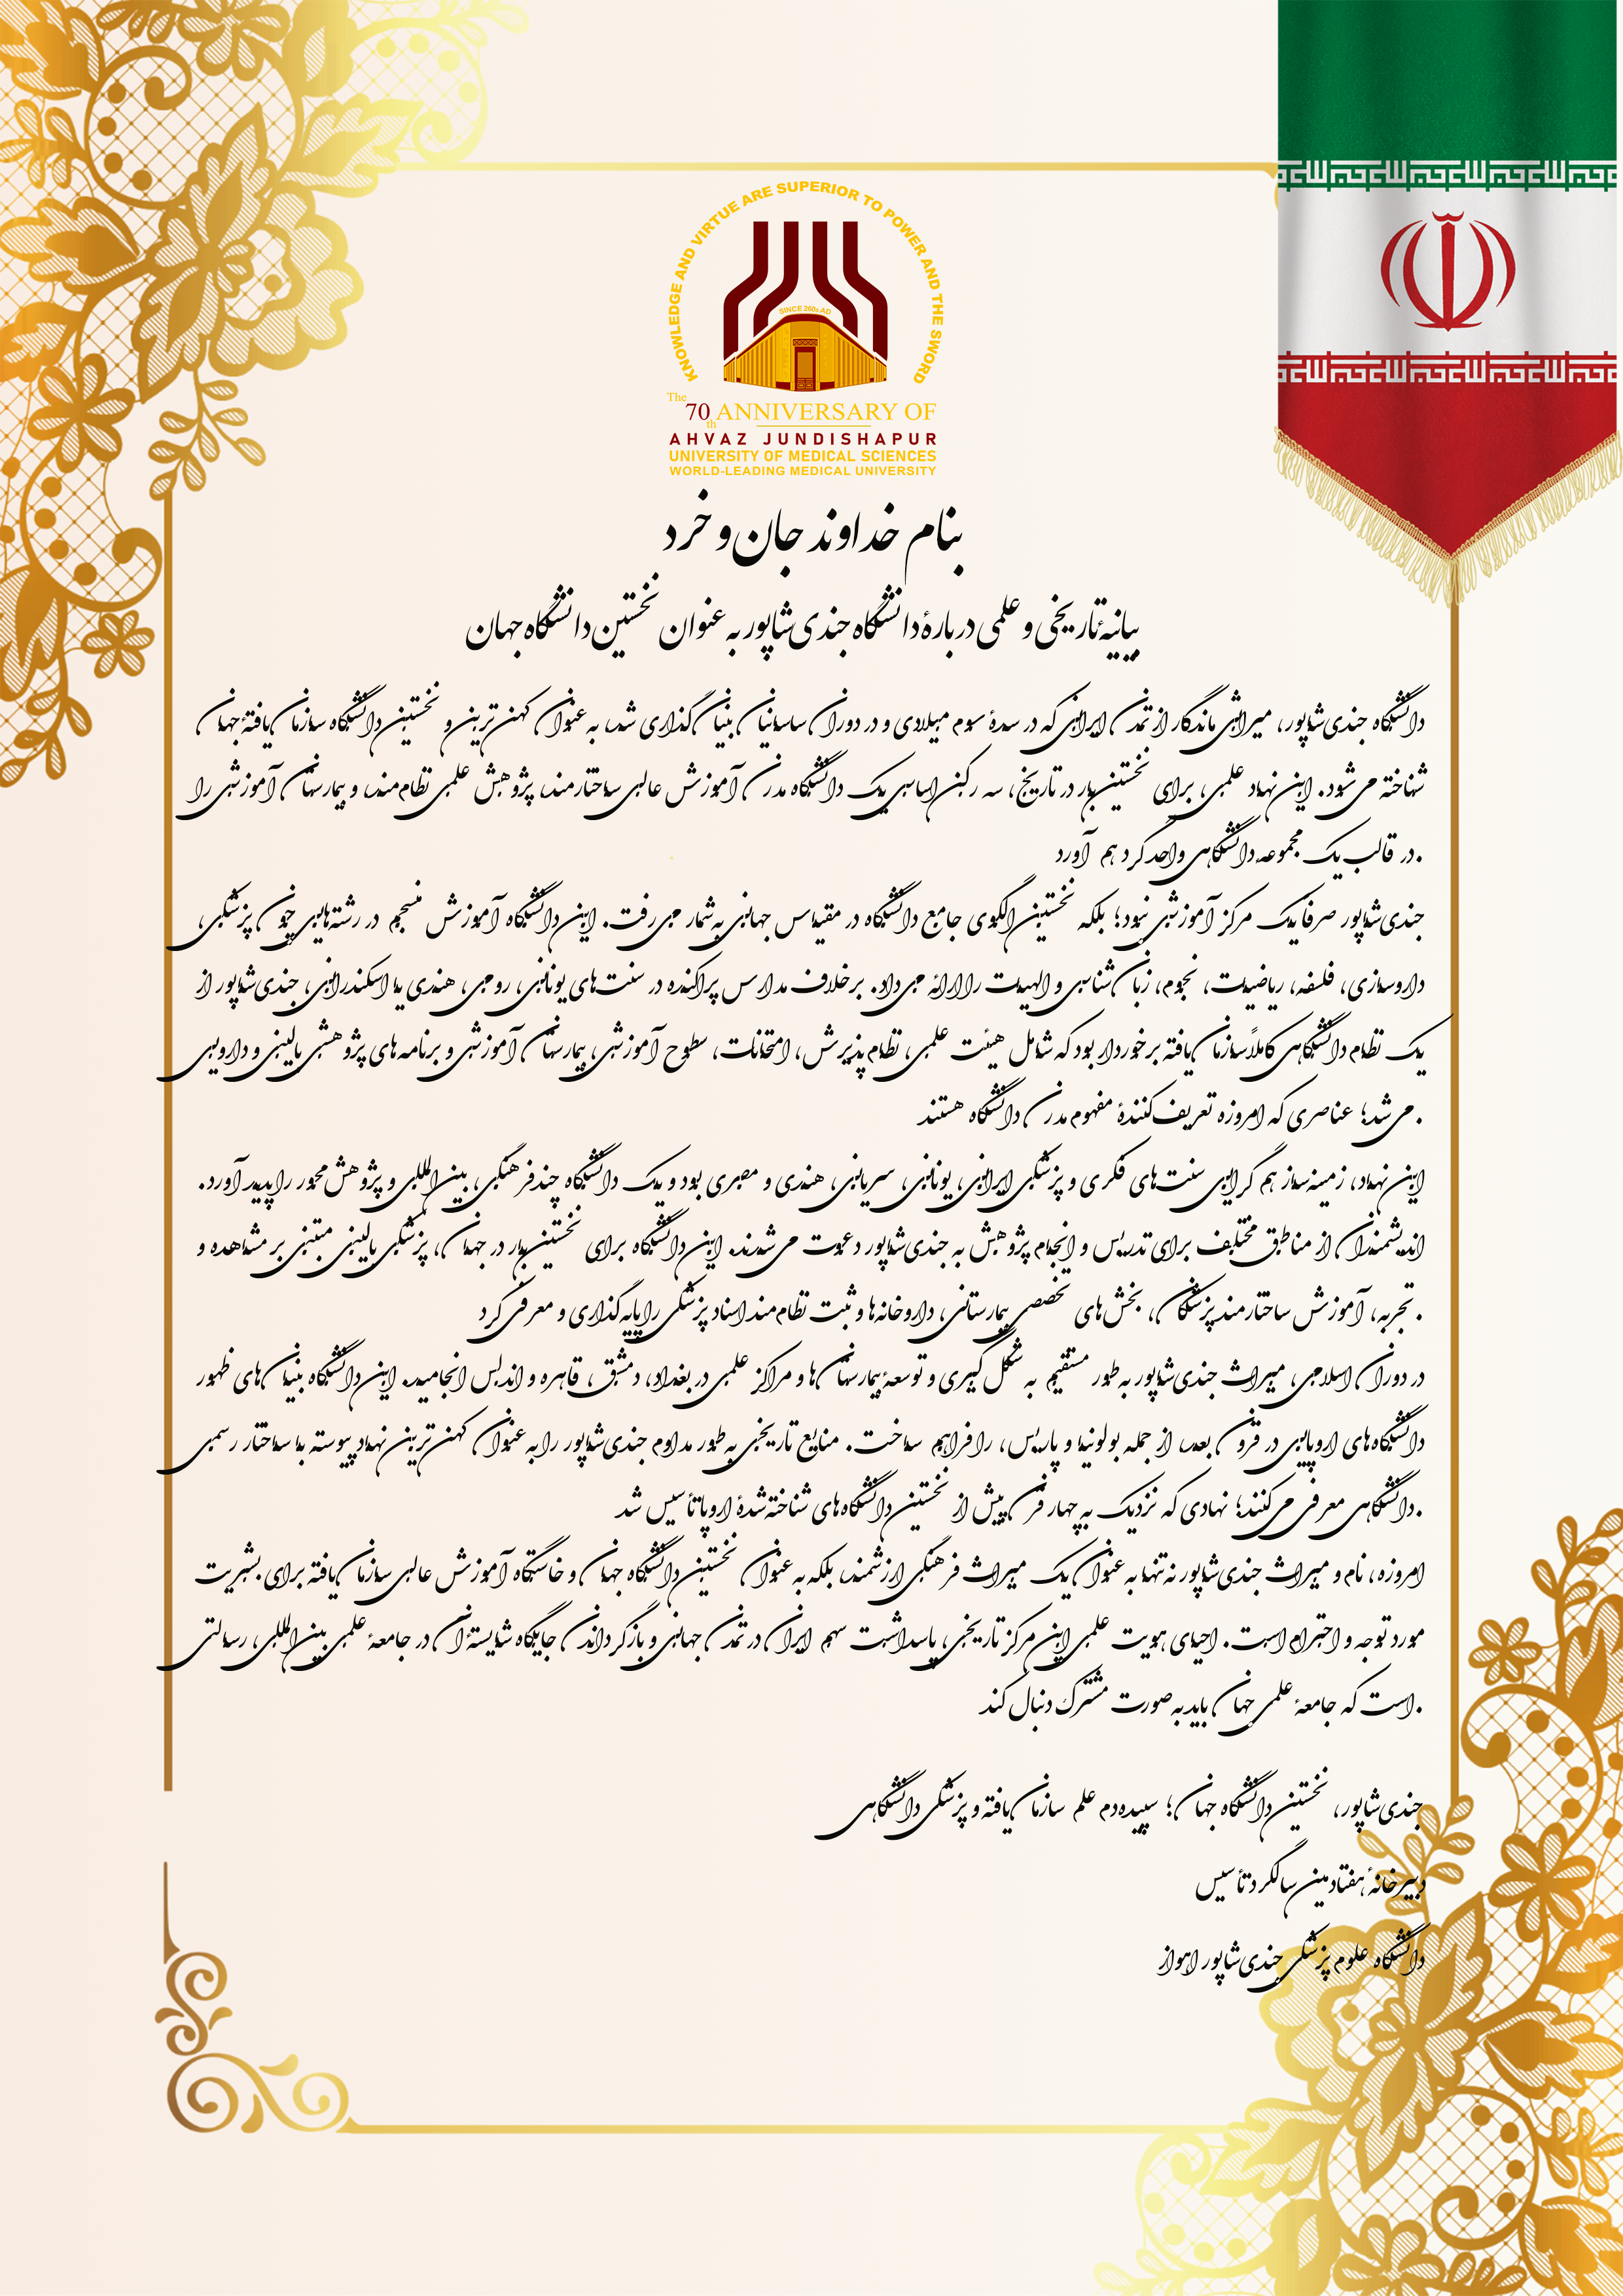 KNOWLEDGE AND VIRTUE ARE SUPERIOR TO POWER AND THE SWORD
SINCE 260s AD
The 70th ANNIVERSARY OF
AHVAZ JUNDISHAPUR
UNIVERSITY OF MEDICAL SCIENCES
WORLD-LEADING MEDICAL UNIVERSITY
بنام خداوند جان و خرد
بیانیهٔ تاریخی و علمی دربارهٔ دانشگاه جندی‌شاپور به عنوان نخستین دانشگاه جهان
دانشگاه جندی‌شاپور، میراثی ماندگار از تمدن ایرانی که در سدهٔ سوم میلادی و در دوران ساسانیان بنیان‌گذاری شد، به عنوان کهن‌ترین و نخستین دانشگاه سازمان‌یافتهٔ جهان
شناخته می‌شود. این نهاد علمی، برای نخستین‌بار در تاریخ، سه رکن اساسی یک دانشگاه مدرن آموزش عالی ساختارمند، پژوهش علمی نظام‌مند، و بیمارستان آموزشی را
.در قالب یک مجموعه دانشگاهی واحد گرد هم آورد
جندی‌شاپور صرفا یک مرکز آموزشی نبود؛ بلکه نخستین الگوی جامع دانشگاه در مقیاس جهانی به‌شمار می‌رفت. این دانشگاه آموزش منسجم در رشته‌هایی چون پزشکی،
داروسازی، فلسفه، ریاضیات، نجوم، زبان‌شناسی و الهیات را ارائه می‌داد. برخلاف مدارس پراکنده در سنت‌های یونانی، رومی، هندی یا اسکندرانی، جندی‌شاپور از
یک نظام دانشگاهی کاملاً سازمان‌یافته برخوردار بود که شامل هیئت علمی، نظام پذیرش، امتحانات، سطوح آموزشی، بیمارستان آموزشی و برنامه‌های پژوهشی بالینی و دارویی
.می‌شد؛ عناصری که امروزه تعریف‌کنندهٔ مفهوم مدرن دانشگاه هستند
این نهاد، زمینه‌ساز هم‌گرایی سنت‌های فکری و پزشکی ایرانی، یونانی، سریانی، هندی و مصری بود و یک دانشگاه چندفرهنگی، بین‌المللی و پژوهش‌محور را پدید آورد.
اندیشمندان از مناطق مختلف برای تدریس و انجام پژوهش به جندی‌شاپور دعوت می‌شدند. این دانشگاه برای نخستین‌بار در جهان، پزشکی بالینی مبتنی بر مشاهده و
.تجربه، آموزش ساختارمند پزشکان، بخش‌های تخصصی بیمارستانی، داروخانه‌ها و ثبت نظام‌مند اسناد پزشکی را پایه‌گذاری و معرفی کرد
در دوران اسلامی، میراث جندی‌شاپور به‌طور مستقیم به شکل‌گیری و توسعهٔ بیمارستان‌ها و مراکز علمی در بغداد، دمشق، قاهره و اندلس انجامید. این دانشگاه بنیان‌های ظهور
دانشگاه‌های اروپایی در قرون بعد، از جمله بولونیا و پاریس، را فراهم ساخت. منابع تاریخی به‌طور مداوم جندی‌شاپور را به عنوان کهن‌ترین نهاد پیوسته با ساختار رسمی
.دانشگاهی معرفی می‌کنند؛ نهادی که نزدیک به چهار قرن پیش از نخستین دانشگاه‌های شناخته‌شدهٔ اروپا تأسیس شد
امروزه، نام و میراث جندی‌شاپور نه تنها به عنوان یک میراث فرهنگی ارزشمند، بلکه به عنوان نخستین دانشگاه جهان و خاستگاه آموزش عالی سازمان‌یافته برای بشریت
مورد توجه و احترام است. احیای هویت علمی این مرکز تاریخی، پاسداشت سهم ایران در تمدن جهانی و بازگرداندن جایگاه شایستهٔ آن در جامعهٔ علمی بین‌المللی، رسالتی
.است که جامعهٔ علمی جهان باید به صورت مشترک دنبال کند
جندی‌شاپور، نخستین دانشگاه جهان؛ سپیده‌دم علم سازمان‌یافته و پزشکی دانشگاهی
دبیرخانهٔ هفتادمین سالگرد تأسیس
دانشگاه علوم پزشکی جندی‌شاپور اهواز